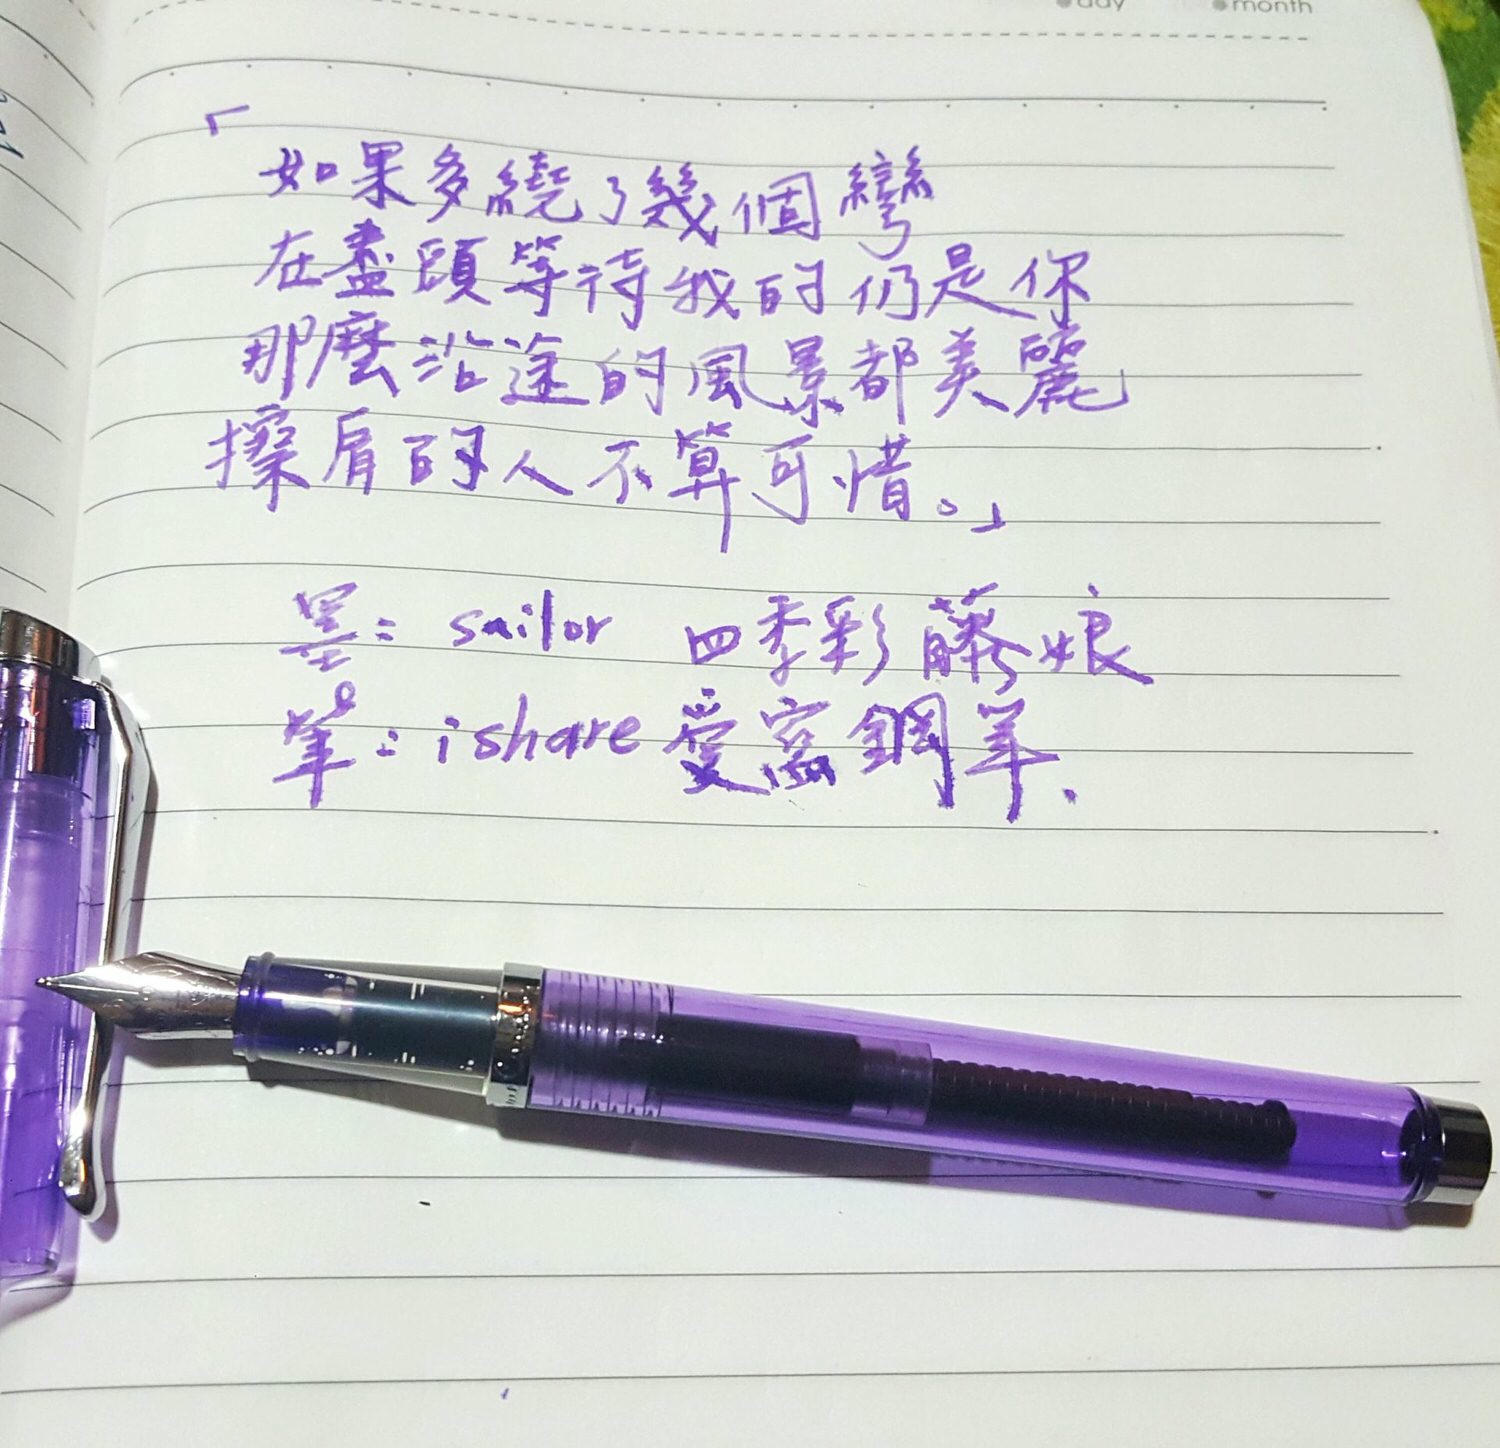 day month
「
如果多繞了幾個彎
在盡頭等待我的仍是你
那麼沿途的風景都美麗
擦肩的人不算可惜。」
墨：sailor 四季彩藤娘
筆：ishare 愛寫鋼筆.